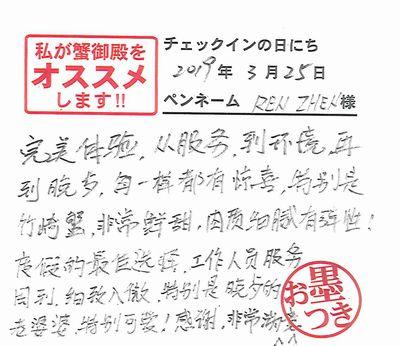 私が蟹御殿を
オススメ
します!!
チェックインの日にち
2019年 3月25日
ペンネーム REN ZHEN様
完美体验，从服务，到环境，再
到晚步，每一样都有惊喜，特别是
竹崎蟹，非常鲜甜，肉质细腻有弹性！
度假的最佳选择，工作人员服务
周到，细致入微，特别是晚步的
老婆婆，特别可爱！感谢，非常满意
^^
墨
おつき